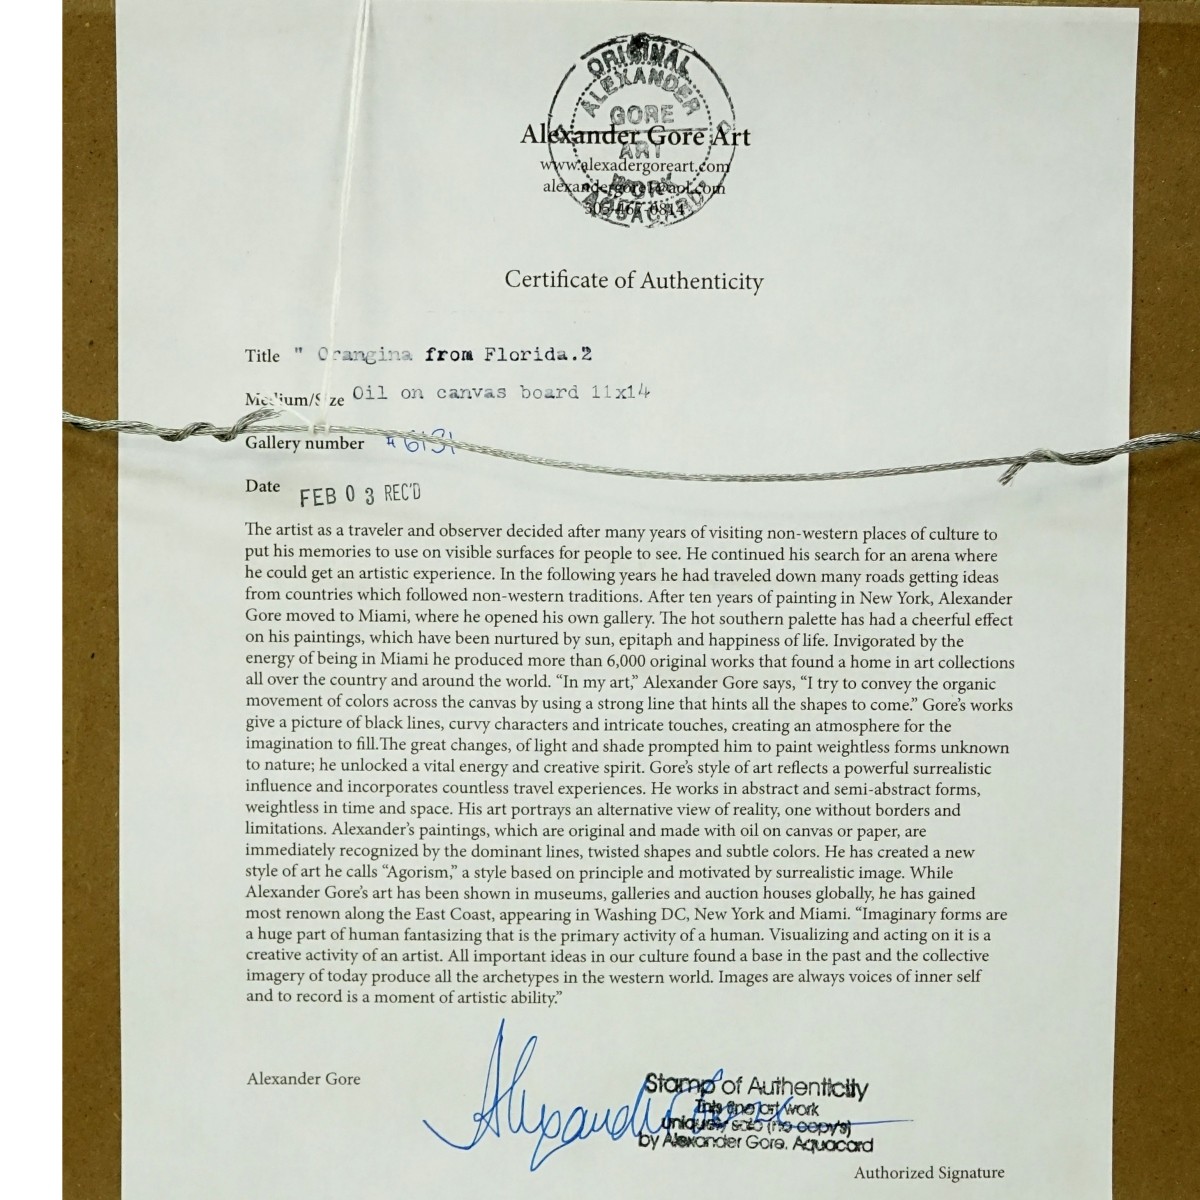 ORIGINAL
ALEXANDER
GORE
ART
WORK
AQUACARD
Alexander Gore Art
www.alexadergoreart.com
alexandergore1@aol.com
Certificate of Authenticity
Title " Orangina from Florida.2
Medium/Size Oil on canvas board 11x14
Gallery number # 6131
Date FEB 03 REC'D
The artist as a traveler and observer decided after many years of visiting non-western places of culture to
put his memories to use on visible surfaces for people to see. He continued his search for an arena where
he could get an artistic experience. In the following years he had traveled down many roads getting ideas
from countries which followed non-western traditions. After ten years of painting in New York, Alexander
Gore moved to Miami, where he opened his own gallery. The hot southern palette has had a cheerful effect
on his paintings, which have been nurtured by sun, epitaph and happiness of life. Invigorated by the
energy of being in Miami he produced more than 6,000 original works that found a home in art collections
all over the country and around the world. “In my art,” Alexander Gore says, “I try to convey the organic
movement of colors across the canvas by using a strong line that hints all the shapes to come.” Gore’s works
give a picture of black lines, curvy characters and intricate touches, creating an atmosphere for the
imagination to fill.The great changes, of light and shade prompted him to paint weightless forms unknown
to nature; he unlocked a vital energy and creative spirit. Gore’s style of art reflects a powerful surrealistic
influence and incorporates countless travel experiences. He works in abstract and semi-abstract forms,
weightless in time and space. His art portrays an alternative view of reality, one without borders and
limitations. Alexander’s paintings, which are original and made with oil on canvas or paper, are
immediately recognized by the dominant lines, twisted shapes and subtle colors. He has created a new
style of art he calls “Agorism,” a style based on principle and motivated by surrealistic image. While
Alexander Gore’s art has been shown in museums, galleries and auction houses globally, he has gained
most renown along the East Coast, appearing in Washing DC, New York and Miami. “Imaginary forms are
a huge part of human fantasizing that is the primary activity of a human. Visualizing and acting on it is a
creative activity of an artist. All important ideas in our culture found a base in the past and the collective
imagery of today produce all the archetypes in the western world. Images are always voices of inner self
and to record is a moment of artistic ability.”
Alexander Gore
Alexander Gore
Stamp of Authenticity
This fine art work
unique, solo (no copy's)
by Alexander Gore, Aquacard
Authorized Signature